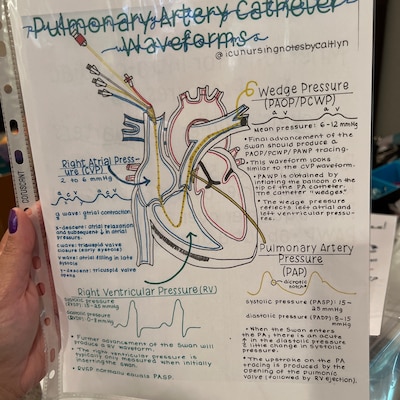 Pulmonary Artery Catheter
Waveforms
@icunursingnotesbycaitlyn
Wedge Pressure
(PAOP/PCWP)
a v a v
Mean pressure: 6-12 mmHg
• Final advancement of the
Swan should produce a
PAOP/PCWP/PAWP tracing.
• This waveform looks
similar to the CVP waveform.
• PAWP is obtained by
inflating the balloon on the
tip of the PA catheter.
The catheter "wedges".
• The wedge pressure
reflects left atrial and
left ventricular pressu-
res.
Right Atrial Press-
ure (CVP)
2 to 6 mmHg
a wave: atrial contraction
x-descent: atrial relaxation
and subsequent ↓ in atrial
pressure.
c wave: tricuspid valve
closure (early systole)
v wave: atrial filling in late
systole
y-descent: tricuspid valve
opens
Right Ventricular Pressure (RV)
systolic pressure
(RVSP) 15-25 mmHg
diastolic pressure
(RVDP) 0-8 mmHg
• Further advancement of the Swan will
produce a RV waveform.
• The right ventricular pressure is
typically only measured when initially
inserting the Swan.
• RVSP normally equals PASP.
Pulmonary Artery
Pressure
(PAP)
dicrotic
notch
systolic pressure (PASP): 15-
25 mmHg
diastolic pressure (PADP): 8-15
mmHg
• When the Swan enters
the PA, there is an acute
↑ in the diastolic pressure
& little change in systolic
pressure.
• The upstroke on the PA
tracing is produced by the
opening of the pulmonic
valve (followed by RV ejection).